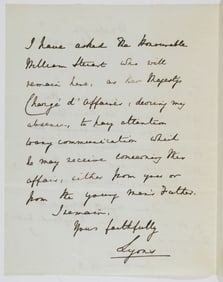 I have asked the Honourable
William Stuart who will
remain here, as Her Majesty's
Chargé d'Affaires, during my
absence, to pay attention
to any communication which
he may receive concerning this
affair, either from you or
from the young man's Father.
I remain,
Yours faithfully
Lyons